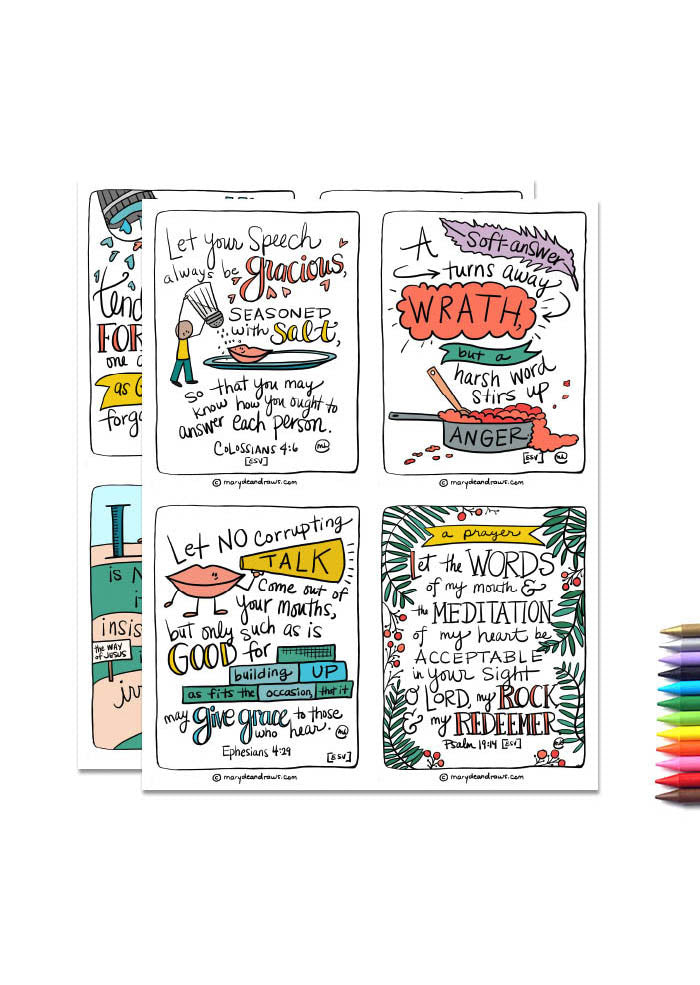 Let your Speech
always be gracious,
SEASONED
with Salt,
so that you may
know how you ought to
answer each person.
COLOSSIANS 4:6
[ESV]
ML
© marydeandraws.com
A soft answer
turns away
WRATH,
but a
harsh word
stirs up
ANGER
[ESV]
ML
© marydeandraws.com
Let NO corrupting
TALK
Come out of
your mouths,
but only such as is
GOOD for
building UP
as fits the occasion, that it
may give grace to those
who hear.
ML
Ephesians 4:29
[ESV]
© marydeandraws.com
a prayer
Let the WORDS
of my mouth &
the MEDITATION
of my heart be
ACCEPTABLE
in your Sight
O LORD, my ROCK
& my REDEEMER
Psalm 19:14 [ESV]
ML
© marydeandraws.com
FOR
one
as
is
insis
the WAY
of JESUS